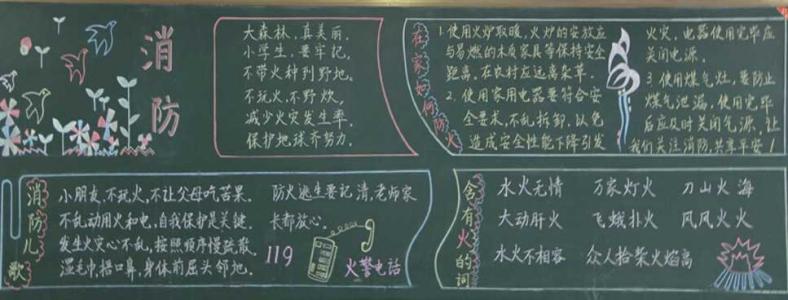 消防
大森林,真美丽.
小学生,要牢记.
不带火种到野地.
不玩火,不野炊,
减少火灾发生率.
保护地球齐努力.
在家如何防火
1.使用火炉取暖,火炉的安放应
与易燃的木质家具等保持安全
距离,在农村应远离柴草.
2.使用家用电器要符合安
全要求,不乱拆卸,以免
造成安全性能下降引发
火灾,电器使用完毕应
关闭电源.
3.使用煤气灶,要防止
煤气泄漏,使用完毕
后应及时关闭气源,让
我们关注消防,共享平安!
消防儿歌
小朋友,不玩火,不让父母吃苦果.
不乱动用火和电,自我保护是关键.
发生火灾心不乱,按照顺序慢疏散.
湿毛巾捂口鼻,身体前屈头邻地.
防火逃生要记清,老师家
长都放心.
119
火警电话
含有火的词
水火无情 万家灯火 刀山火海
大动肝火 飞蛾扑火 风风火火
水火不相容 众人拾柴火焰高